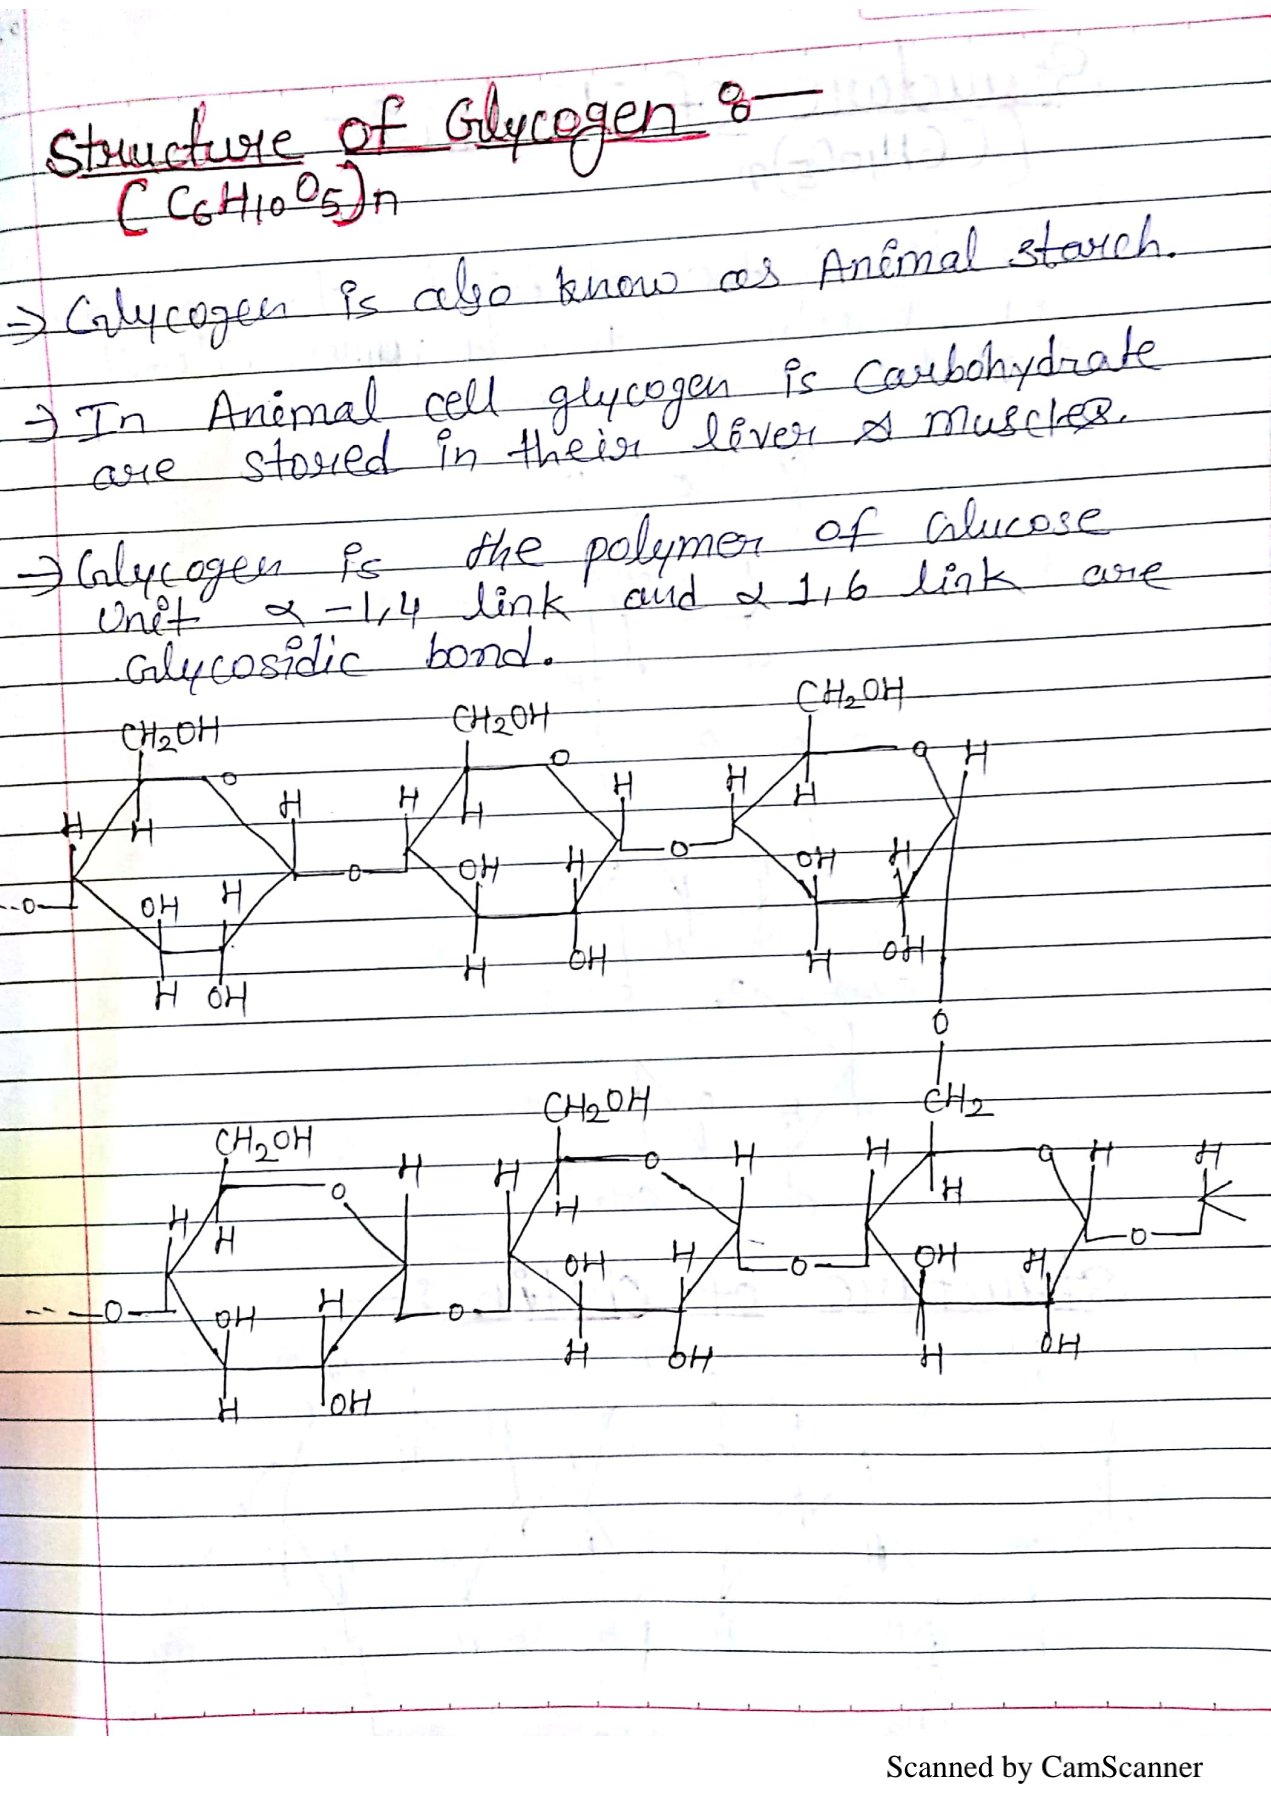 Structure of Glycogen :—
(C6H10O5)n
⇒ Glycogen is also know as Animal starch.
⇒ In Animal cell glycogen is Carbohydrate
are stored in their liver & muscles.
⇒ Glycogen is the polymer of Glucose
Unit α -1,4 link and α 1,6 link are
Glycosidic bond.
CH2OH CH2OH CH2OH
O O O H
H H H H H H H H
OH H OH H OH H
--O O O
H OH H OH H OH
O
CH2
CH2OH CH2OH
O O O
H H H H H H H H H H
OH H OH H OH H
---O O O O
H OH H OH H OH
Scanned by CamScanner